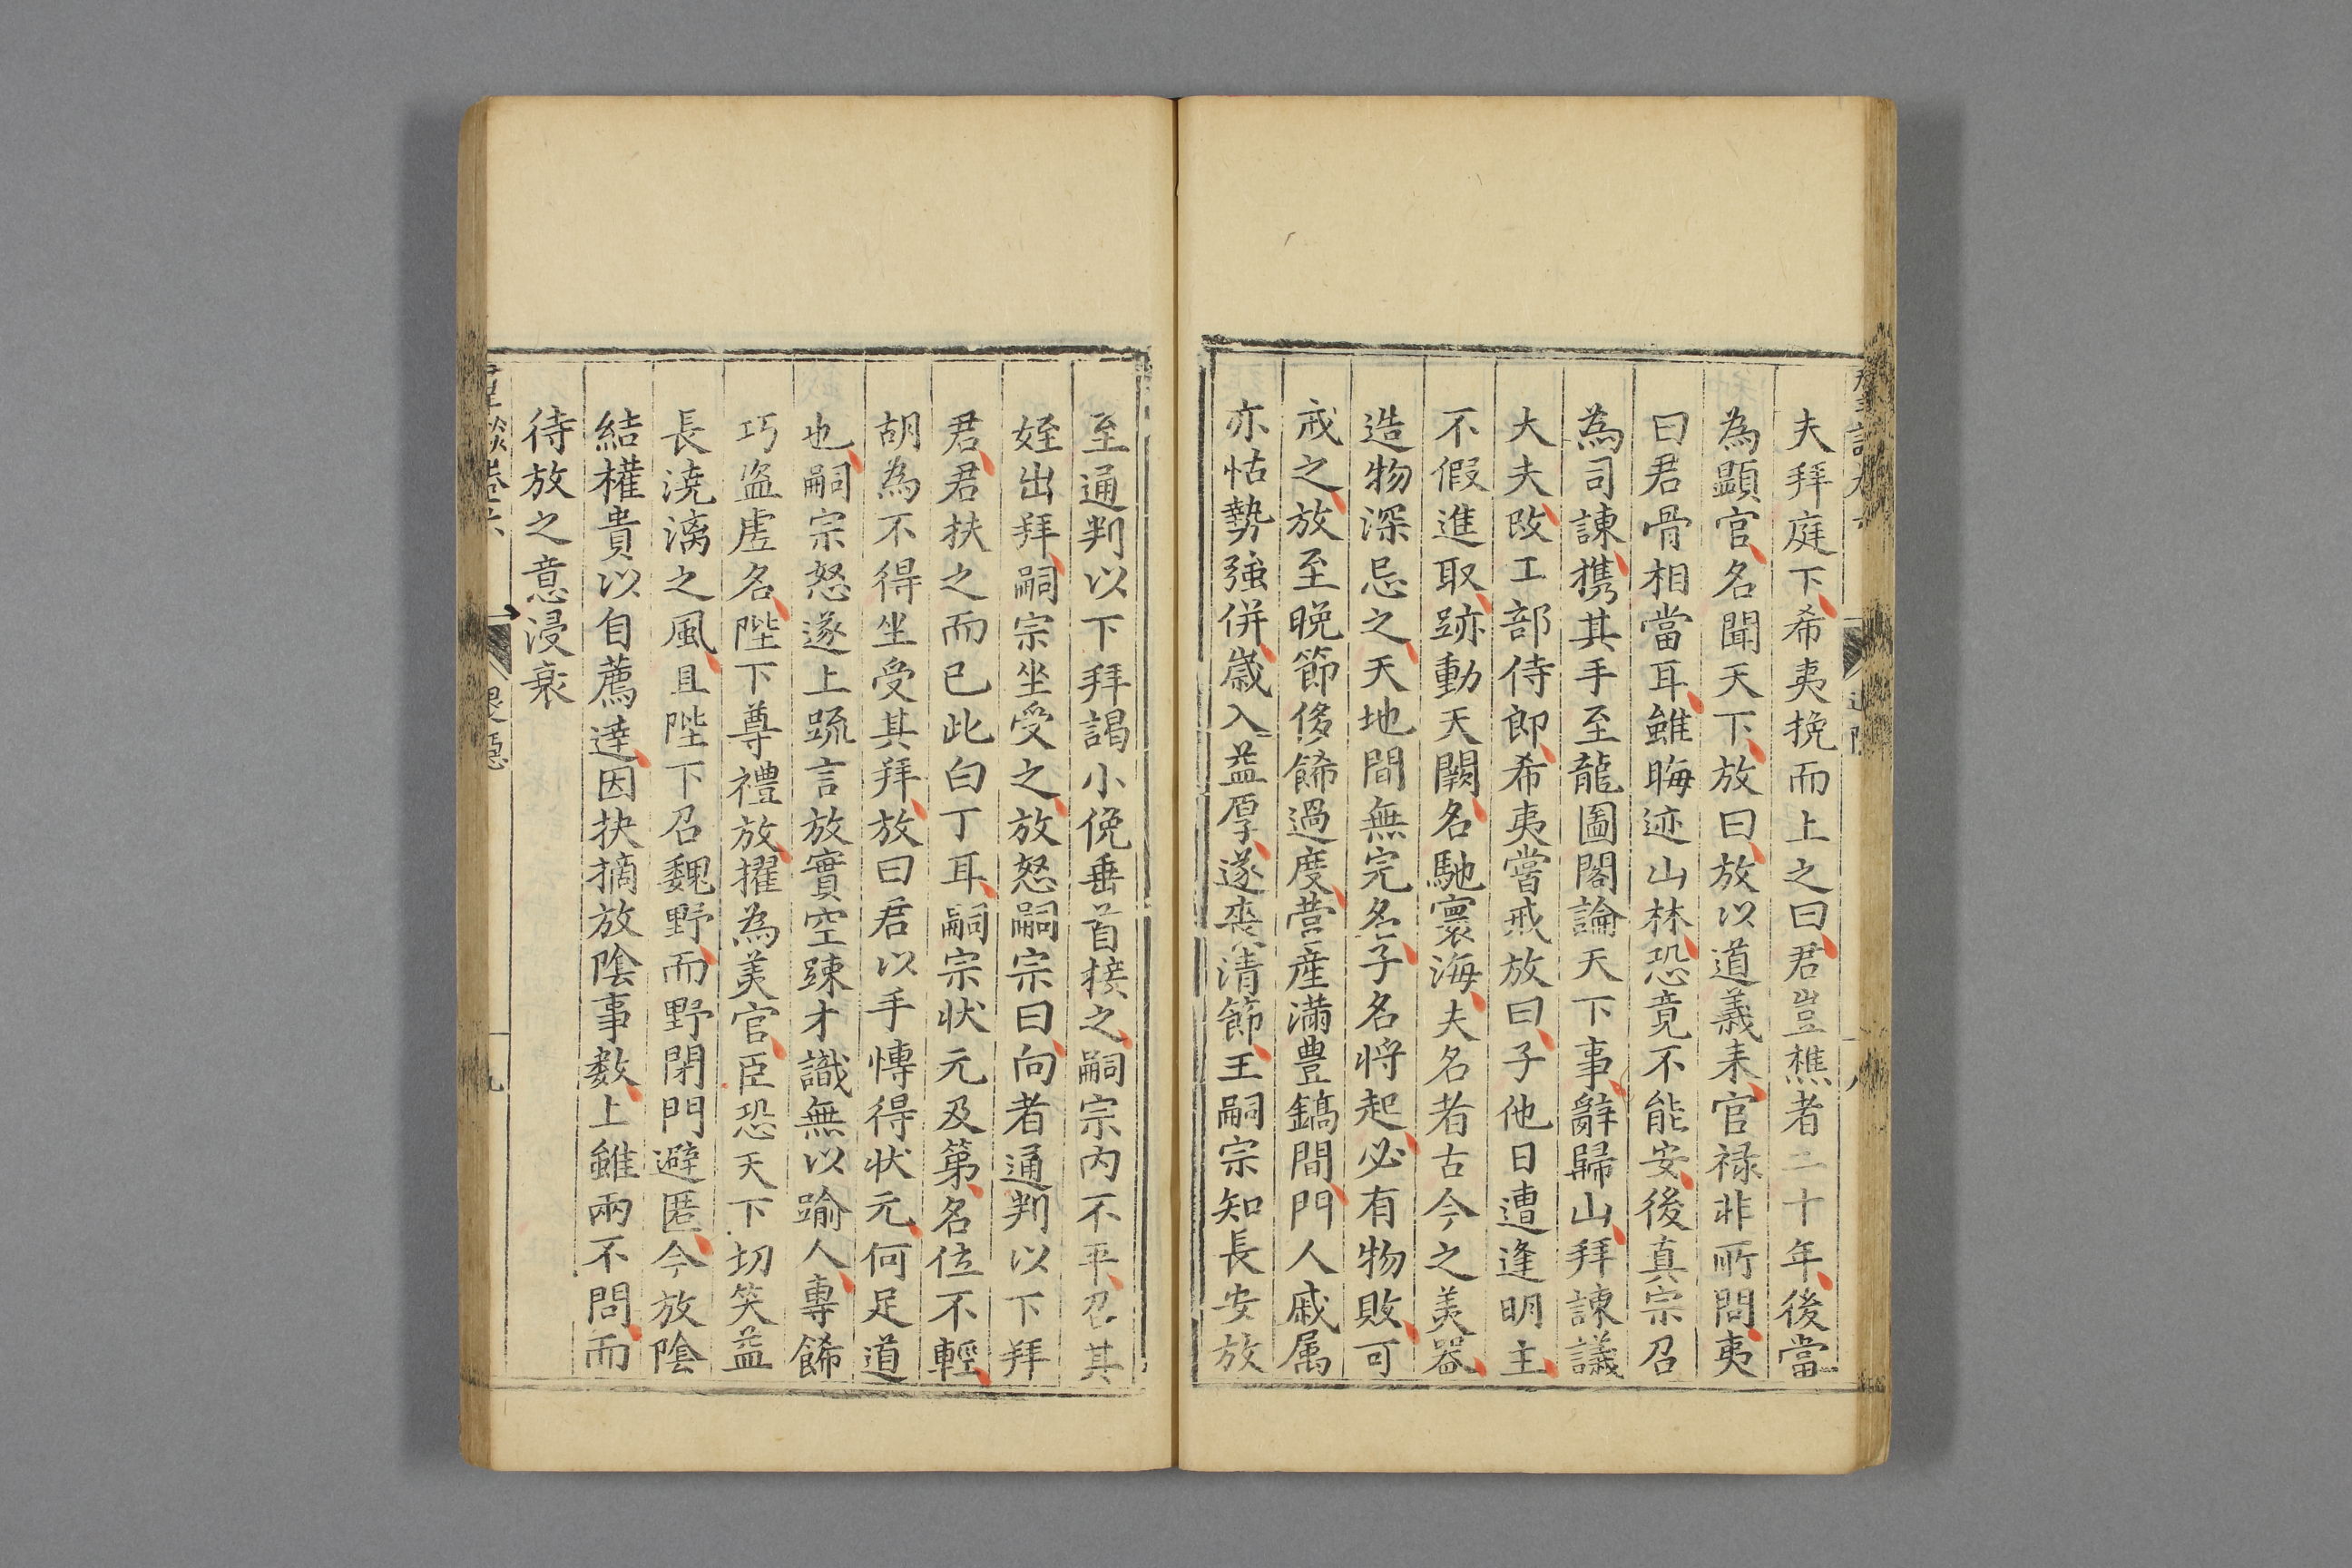 夫拜庭下希夷挽而上之曰君豈樵者二十年後當
為顯官名聞天下放曰放以道義来官禄非所問夷
曰君骨相當耳雖晦迹山林恐竟不能安後真宗召
為司諫携其手至龍圖閣論天下事辭歸山拜諫議
大夫改工部侍郎希夷嘗戒放曰子他日遭逢明主
不假進取跡動天闕名馳寰海夫名者古今之美器
造物深忌之天地間無完名子名将起必有物敗可
戒之放至晩節侈餙過度營産滿豊鎬間門人戚属
亦怙勢強併歳入益厚遂喪清節王嗣宗知長安放
至通判以下拜謁小俛垂首接之嗣宗内不平召其
姪出拜嗣宗坐受之放怒嗣宗曰向者通判以下拜
君君扶之而已此白丁耳嗣宗状元及第名位不輕
胡為不得坐受其拜放曰君以手慱得状元何足道
也嗣宗怒遂上䟽言放實空踈才識無以踰人專餙
巧盗虚名陛下尊禮放擢為美官臣恐天下切笑益
長澆漓之風且陛下召魏野而野閉門避匿今放陰
結權貴以自薦達因抉摘放陰事数上雖兩不問而
待放之意浸衰
卷六
退隱
九